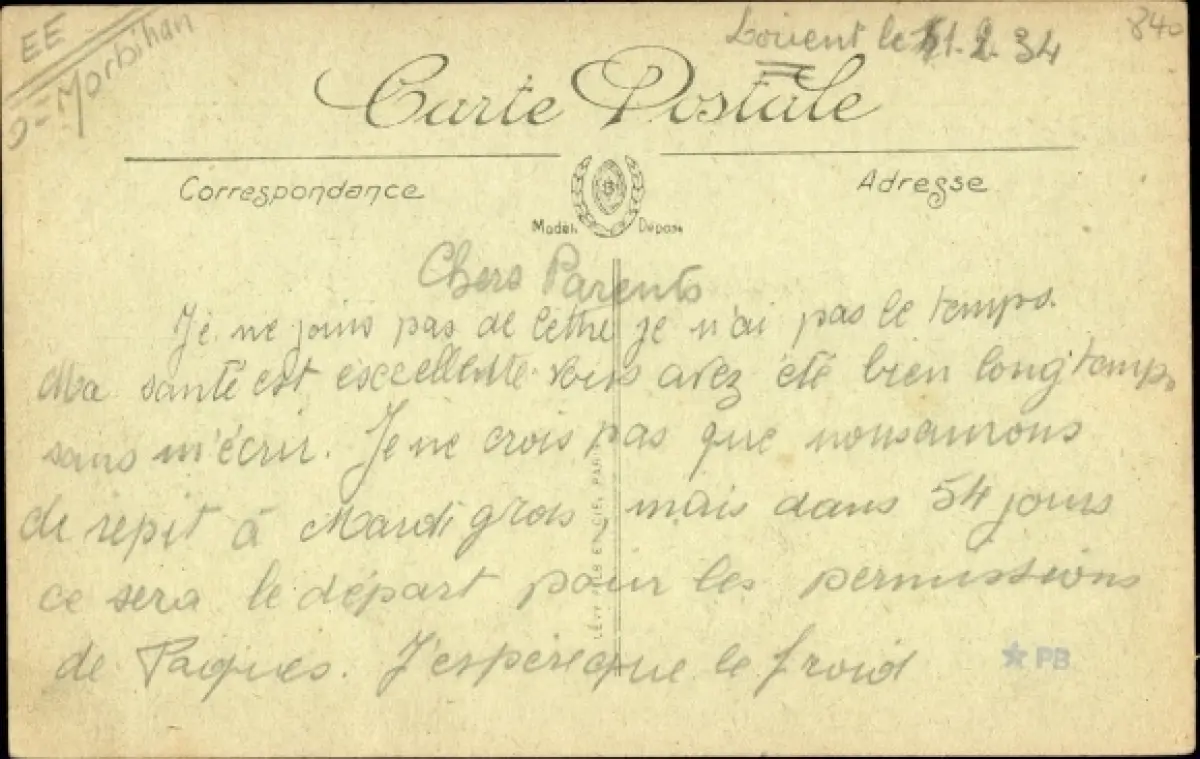 EE
Morbihan
Lorient le 1.2.34
840
Carte Postale
Correspondance
Adresse
Modèle Déposé
Chers Parents
Je ne joins pas de lettre je n'ai pas le temps.
Ma santé est excellente. Vous avez été bien longtemps
sans m'écrir. Je ne crois pas que nous aurons
de répit à Mardi gras, mais dans 54 jours
ce sera le départ pour les permissions
de Paques. J'espère que le froid
LÉVY PARIS
★ PB